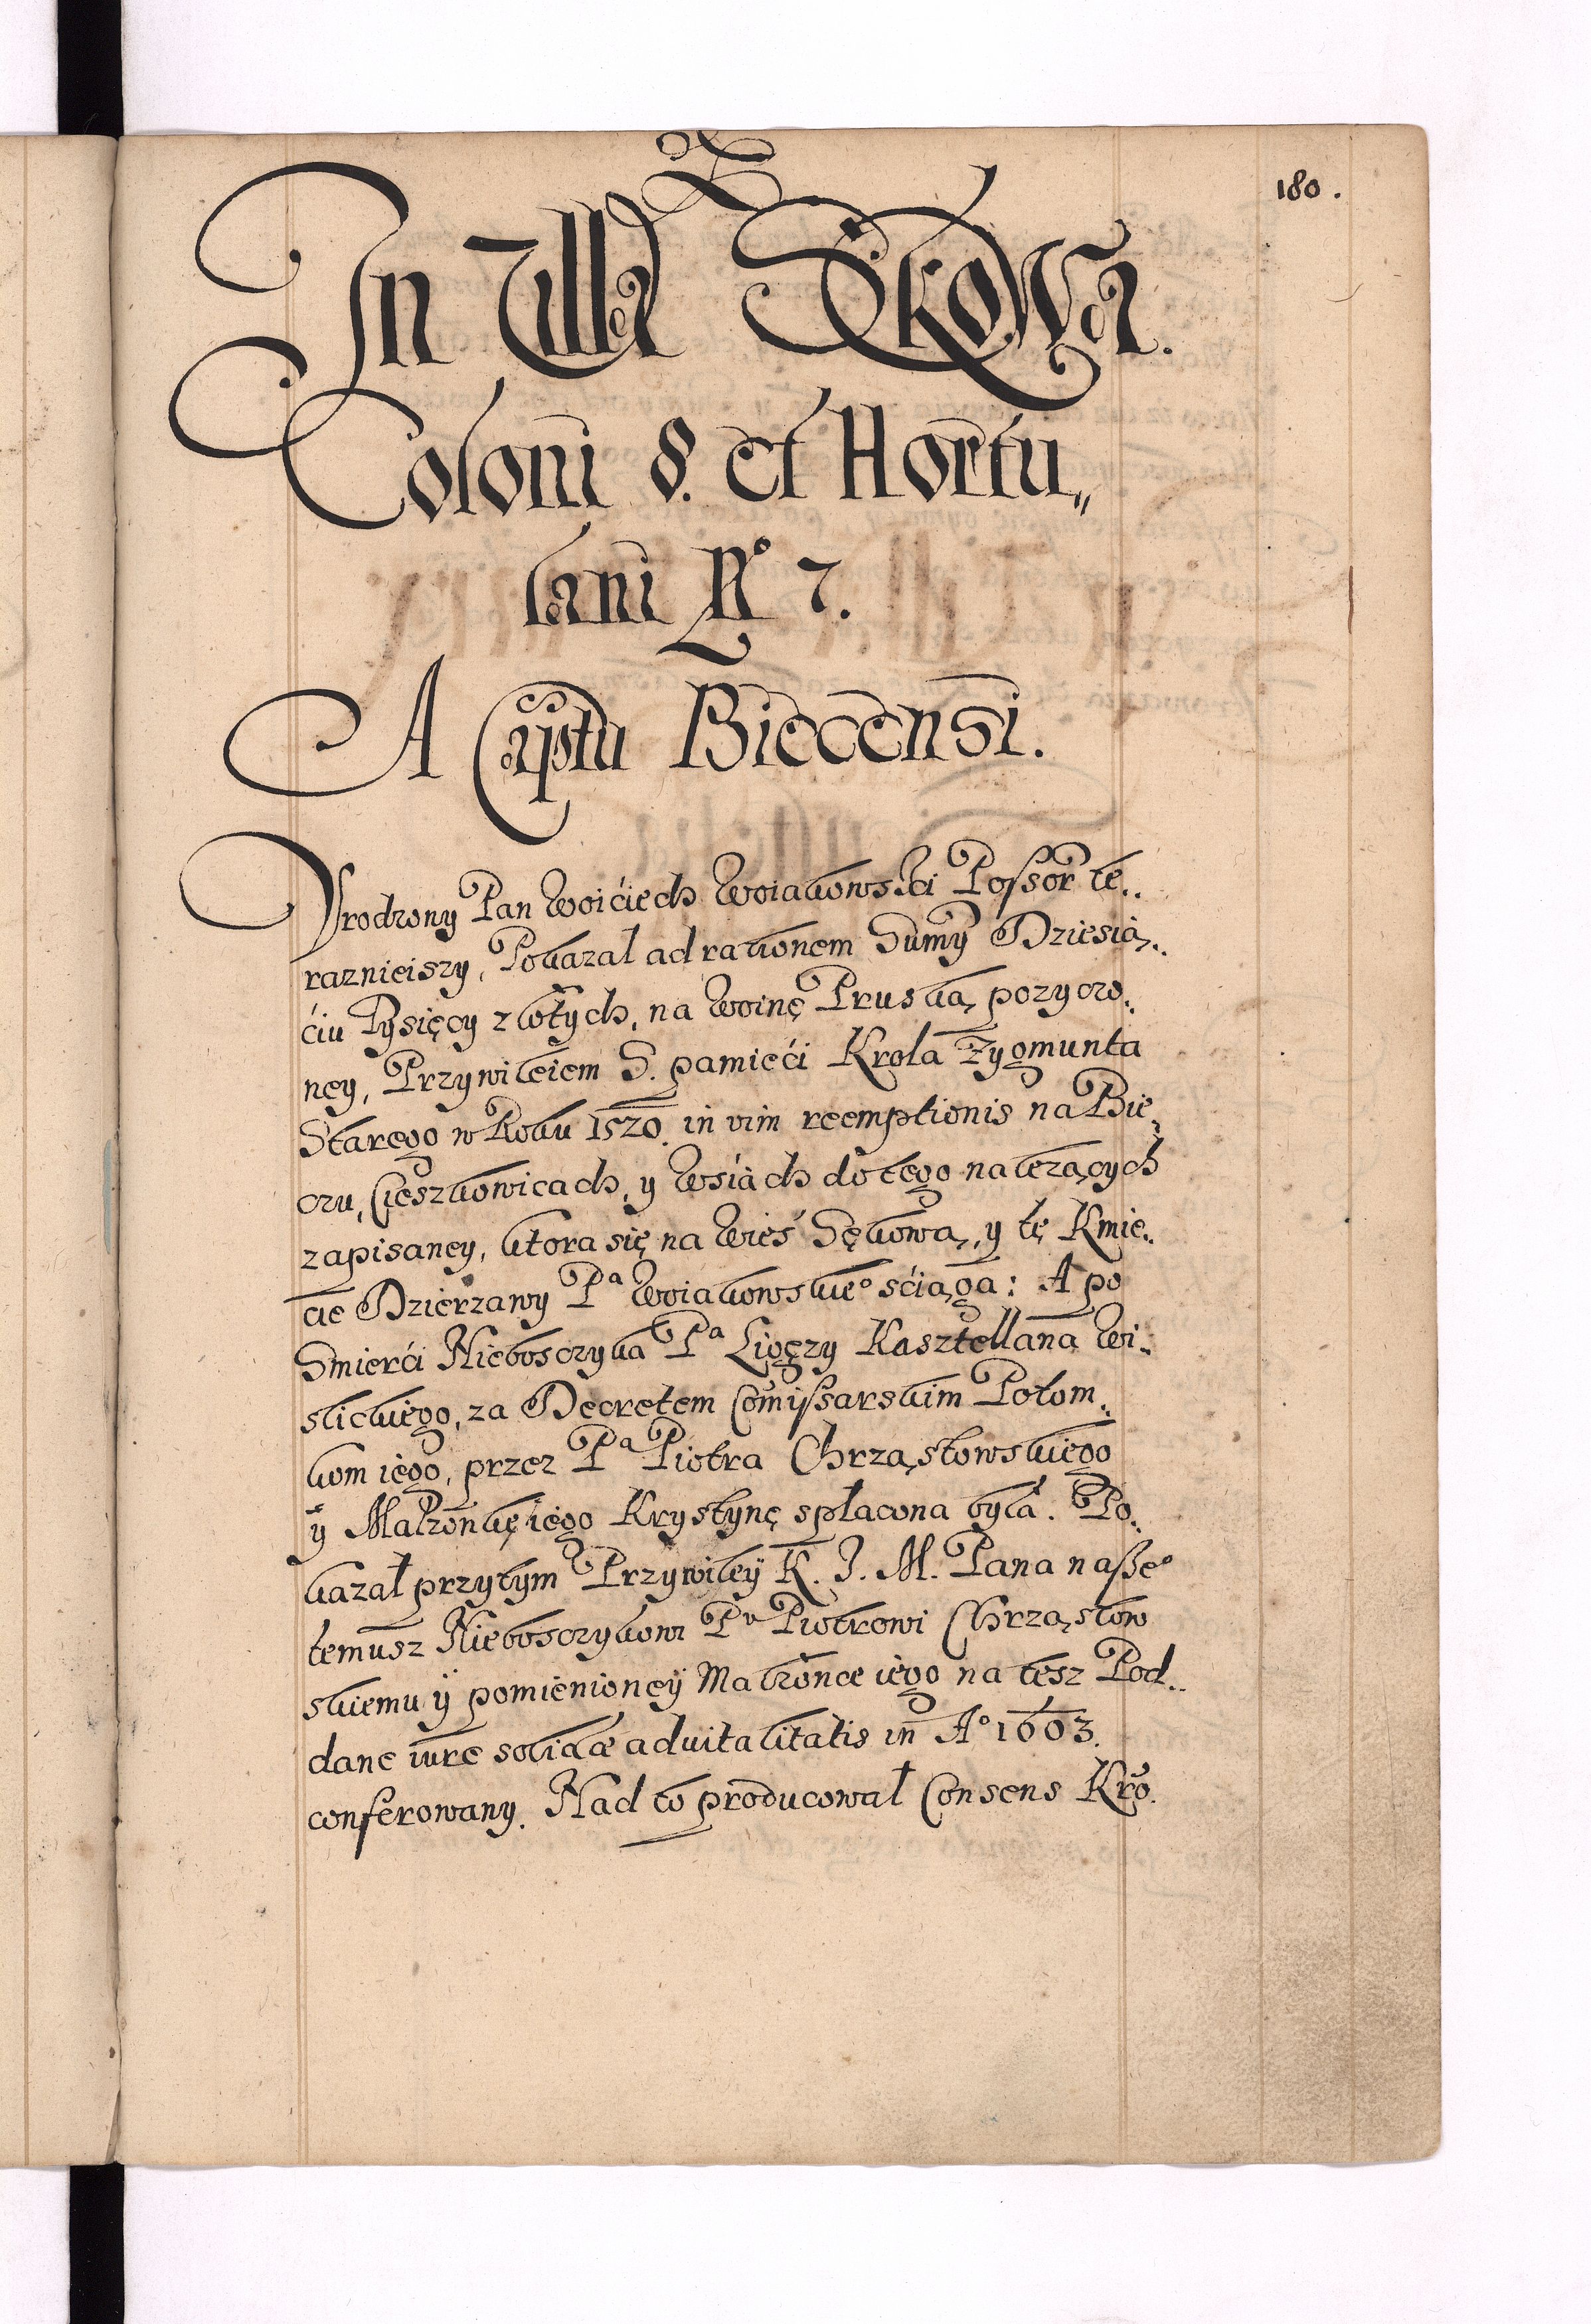 180.
In Villa Skowa.
Coloni 8. et Hortu„
lani N° 7.
A Capitu Biecensi.
Vrodzony Pan Woićiech Woiakowski Possor te..
raznieiszy, Pokazal ad rationem Sumy Dziesią..
ćiu Tysięcy złotych, na Woinę Pruską pozyczo.
ney, Przywileiem S. pamięći Krola Zygmunta
Starego w Roku 1520. in vim reemptionis na Bie.
czu, Cieszkowicach, y Wsiach do tego nalezących
zapisaney, ktora się na Wieś Sękową, y tę Kmie..
cie Dzierzawy Pa Woiakowskie° śćiąga: A po
Smierći Nieboszczyka Pa Ligęzy Kasztellana Wi.
slickiego, za Decretem Comissarskim Potom.
kom iego, przez Pa Piotra Chrząstowskiego
ÿ Małzonkę iego Krystynę spłacona była. Po.
kazał przytym Przywiley K. J. M. Pana nasze°
temusz Nieboszczykowi Pu Piotrowi Chrząstow
skiemu ÿ pomienioneÿ Małzonce iego na tesz Pod..
dane iure solidæ aduitalitatis in A° 1603.
conferowany. Nad to producował Consens Kro.